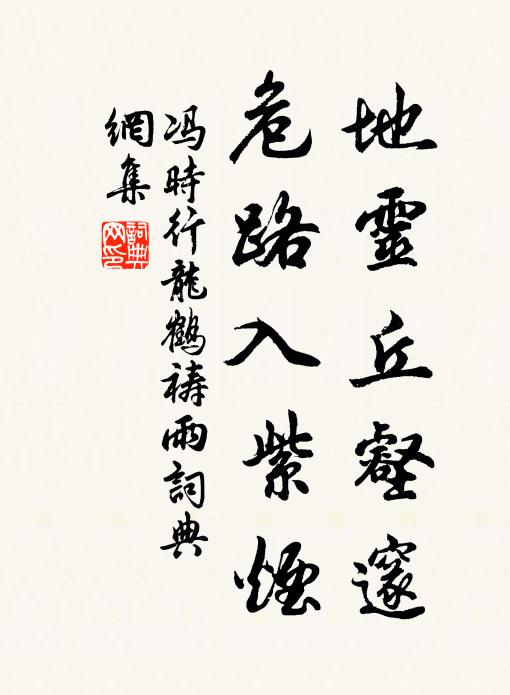 地靈丘壑邃
危路入紫煙
冯時行龍鶴祷雨詞典
網集
詞典网印